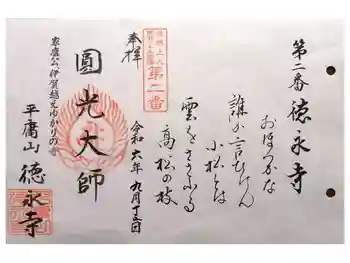 第二番 徳永寺
おぼつかな
誰か言ひけん
小松とは
雲をささふる
高松の枝
令和六年 九月十五日
奉拝
第二番
圓光大師
家康公、伊賀越えゆかりの寺
平庸山 徳永寺